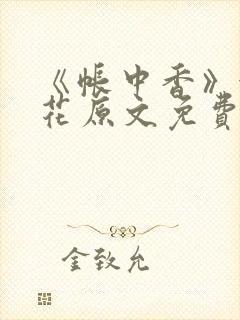 《帐中香》
花原文免費
金致允